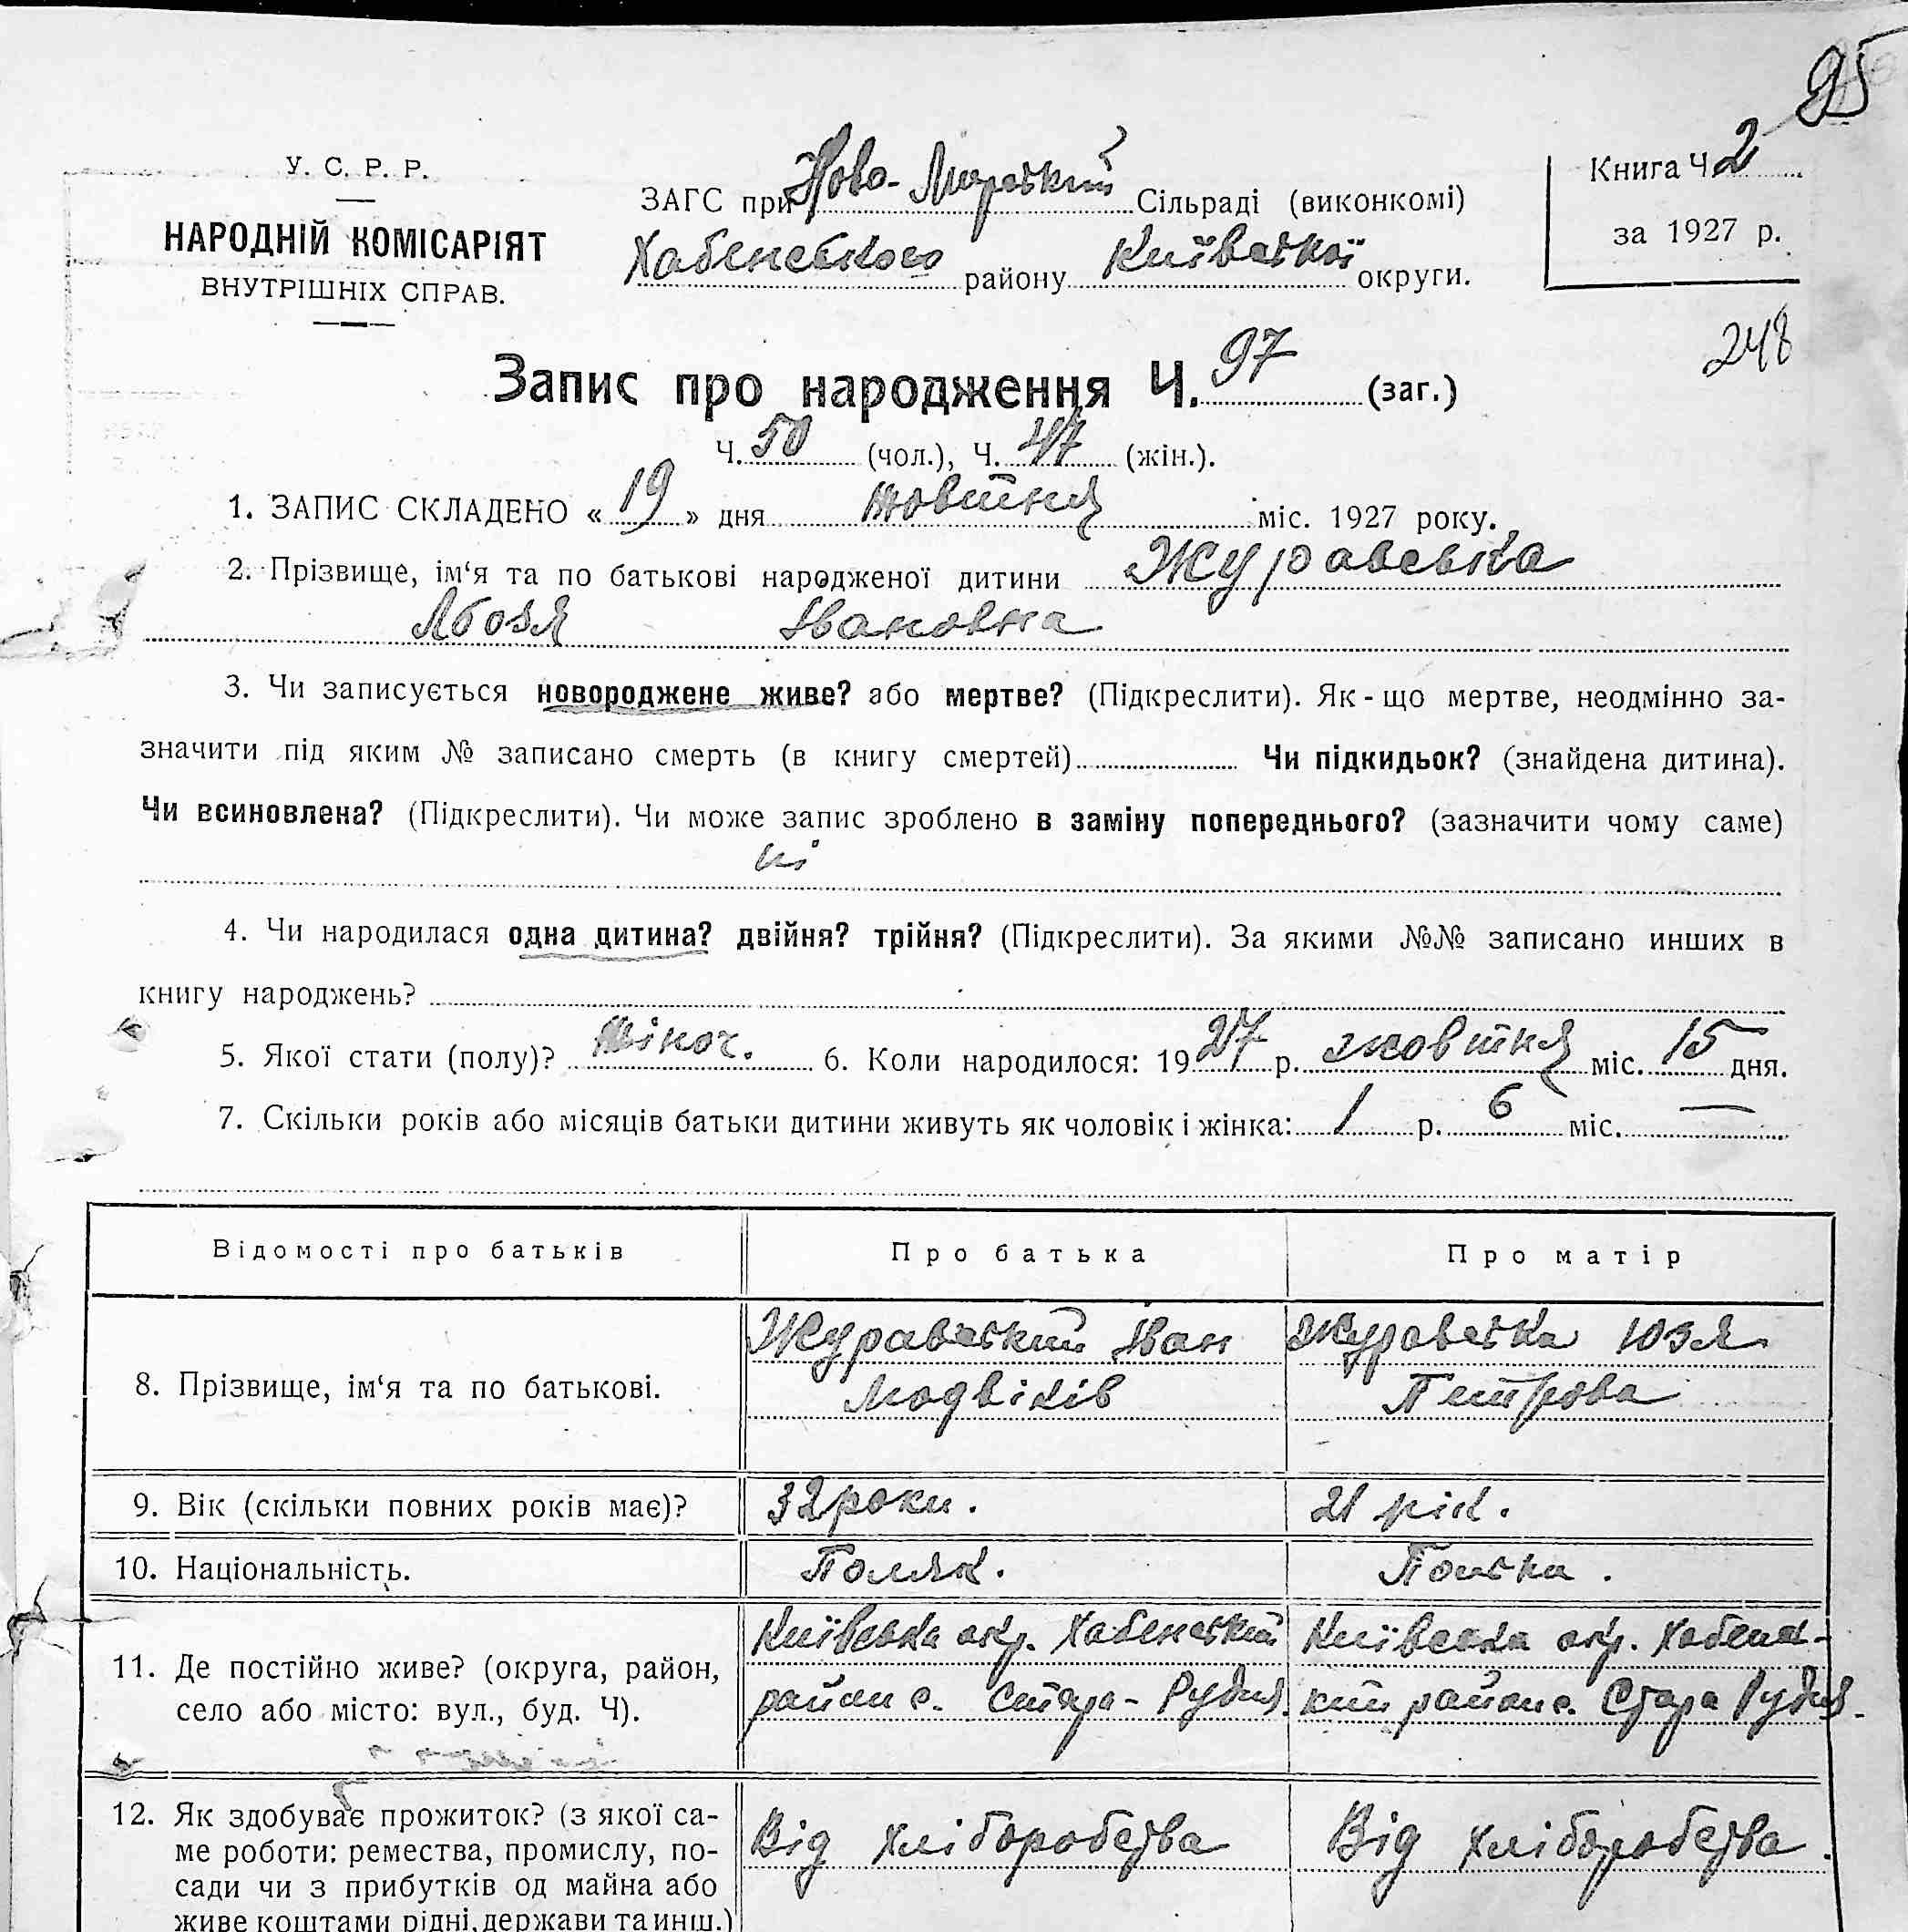 95
У. С. Р. Р.
НАРОДНІЙ КОМІСАРІЯТ
ВНУТРІШНІХ СПРАВ.
ЗАГС при Ново-Мирський Сільраді (виконкомі)
Хабенського району Київської округи.
Книга Ч 2
за 1927 р.
248
Запис про народження Ч. 97 (заг.)
Ч. 50 (чол.), Ч. 47 (жін.).
1. ЗАПИС СКЛАДЕНО « 19 » дня жовтня міс. 1927 року.
2. Прізвище, ім‘я та по батькові народженої дитини Журавська
Івановна
3. Чи записується новороджене живе? або мертве? (Підкреслити). Як-що мертве, неодмінно за-
значити під яким № записано смерть (в книгу смертей) Чи підкидьок? (знайдена дитина).
Чи всиновлена? (Підкреслити). Чи може запис зроблено в заміну попереднього? (зазначити чому саме)
ні
4. Чи народилася одна дитина? двійня? трійня? (Підкреслити). За якими №№ записано инших в
книгу народжень?
5. Якої стати (полу)? жіноч. 6. Коли народилося: 1927 р. жовтня міс. 15 дня.
7. Скільки років або місяців батьки дитини живуть як чоловік і жінка: 1 р. 6 міс. —
Відомості про батьків Про батька Про матір
8. Прізвище, ім‘я та по батькові.
Журавський Іван
Журавська Юзя
Петрова
9. Вік (скільки повних років має)? 32 роки. 21 рік.
10. Національність. Поляк. Полька.
11. Де постійно живе? (округа, район,
село або місто: вул., буд. Ч).
Київська окр. Хабенський
район с. Стара-Рудня.
Київська окр. Хабенсь-
кий район с. Стара Рудня.
12. Як здобуває прожиток? (з якої са-
ме роботи: ремества, промислу, по-
сади чи з прибутків од майна або
живе коштами рідні, держави та инш.)
Від хліборобства
Від хліборобства.